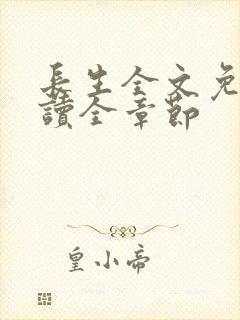 長生全文免
讀全章節
皇小帝